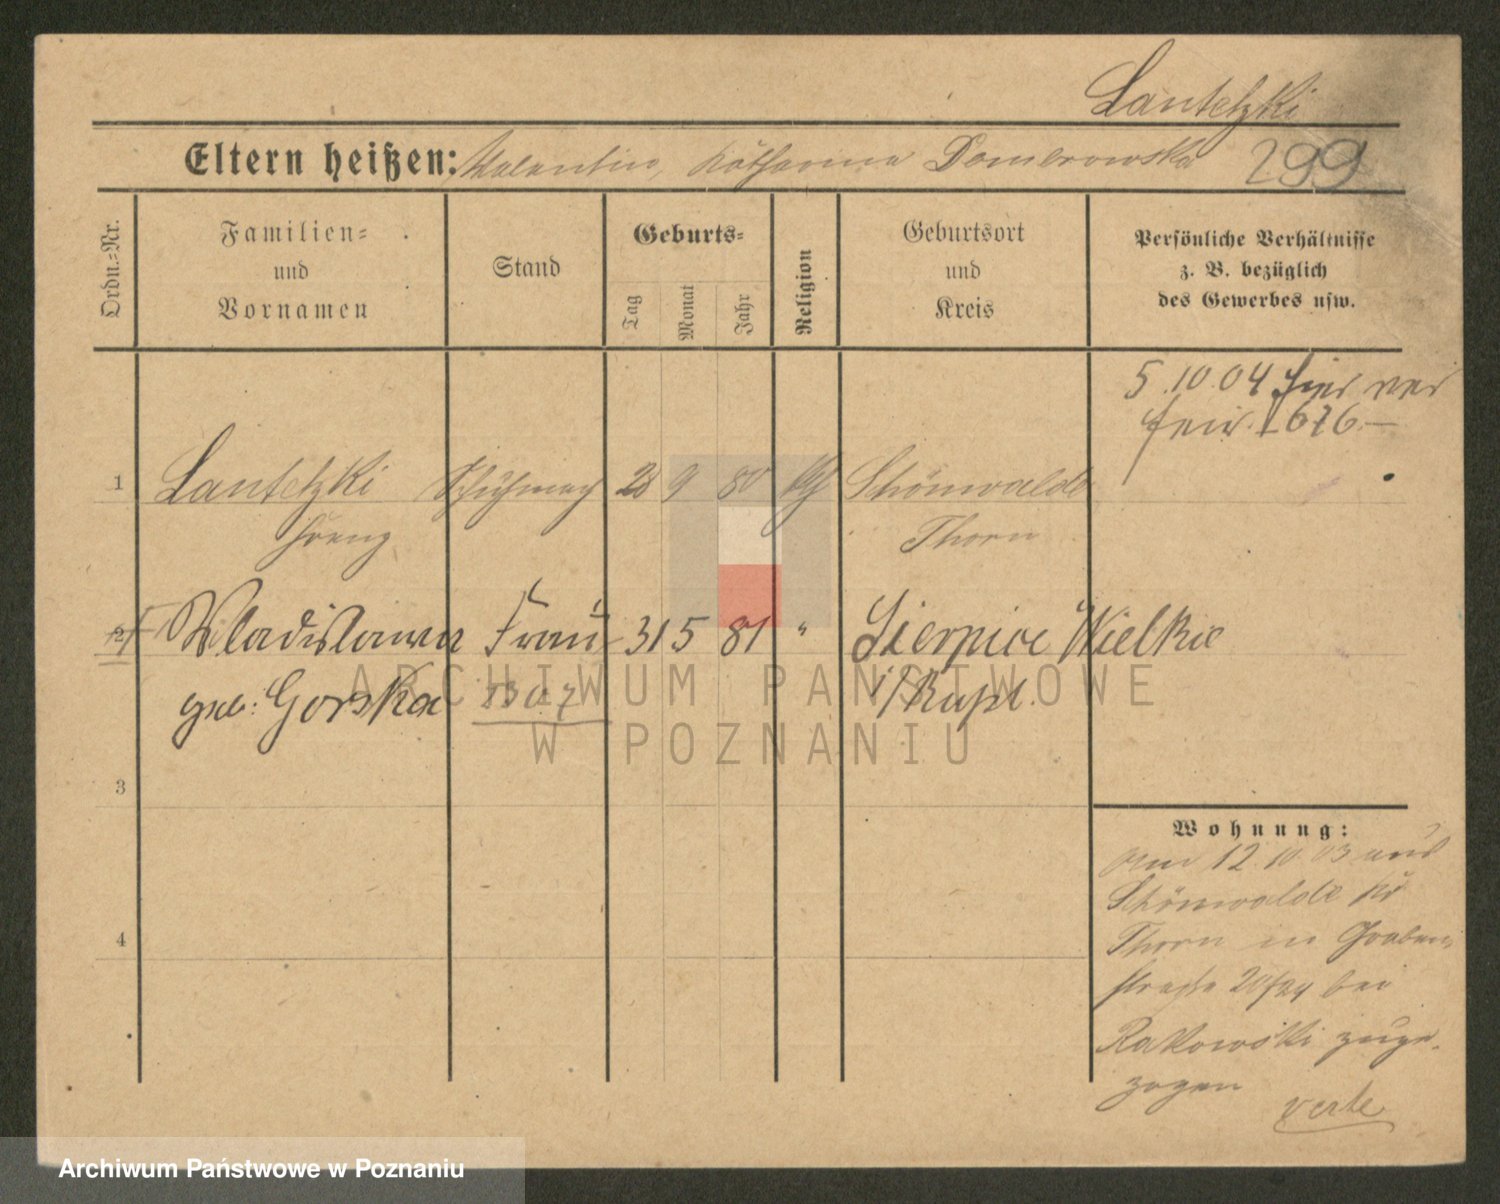 Lantetzki
Eltern heißen: Valentin, Katharina Dombrowska 299
Ordn.-Nr.
Familien-
und
Vornamen
Stand
Geburts-
Tag
Monat
Jahr
Religion
Geburtsort
und
Kreis
Persönliche Verhältnisse
z. B. bezüglich
des Gewerbes usw.
5.10.04 hier
676.—
1 Lantetzki Schuhmach 28 9 80 kth Schönwalde
Franz Thorn
2 Wladislawa Frau 31 5 81 " Sierpice Wielkie
geb: Gorska 1307 i/Rußl.
3
4
Wohnung:
am 12.10.03 aus
Schönwalde Kr
Thorn in Graben-
straße 20/24 bei
Rakowski zuge-
zogen
verte
ARCHIWUM PAŃSTWOWE
W POZNANIU
Archiwum Państwowe w Poznaniu